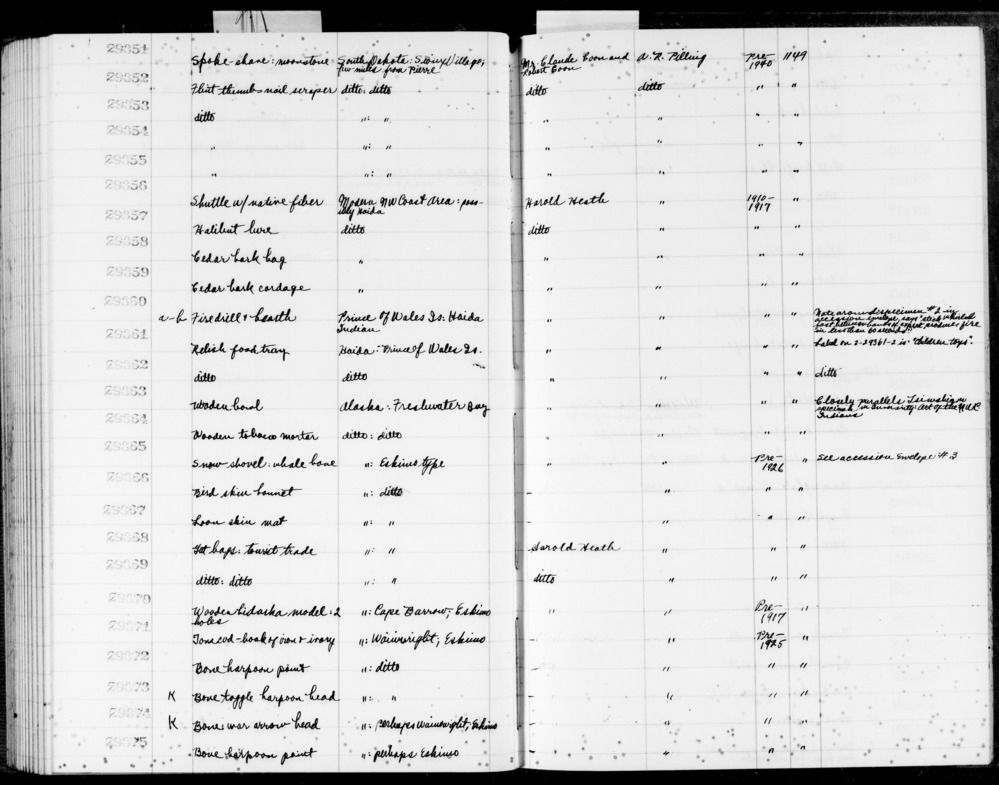 29351 Spoke-shave: moonstone South Dakota: Sioux Village; Mr. Claude Coon and A. R. Pilling Pre- 1149
few miles from Pierre Robert Coon 1940
29352 Flint thumb-nail scraper ditto: ditto ditto ditto " "
29353 ditto ": " " " " "
29354 " ": " " " " "
29355 " ": " " " " "
29356 Shuttle w/ native fiber Modern NW Coast area: poss- Harold Heath " 1910- "
ibly Haida 1917
29357 Halibut lure ditto ditto " " "
29358 Cedar bark bag " " " "
29359 Cedar bark cordage " " " "
29360 a-b Firedrill & hearth Prince of Wales Is: Haida " " " " Note around specimen #2 in
Indian accession envelope says "stick whirled
fast between hands of expert produces fire
in less than 60 seconds!!!"
29361 Relish food tray Haida: Prince of Wales Is. " " " " Label on 2-29361-2 is "Children toys".
29362 ditto ditto " " " " ditto
29363 Wooden bowl Alaska: Freshwater Bay " " " " Closely parallels Tsimshian
specimen in Art of the NWC
Indians
29364 Wooden tobacco mortar ditto: ditto " " " "
29365 Snow-shovel: whale bone ": Eskimo type " " Pre- " See accession Envelope #3
1926
29366 Bird skin bonnet ": ditto - " " "
29367 Loon skin mat ": " - " " "
29368 bags: tourist trade ": " Harold Heath " " "
29369 ditto: ditto ": " ditto " " "
29370 Wooden bidarka model: 2 ": Cape Barrow; Eskimo " " Pre- "
holes 1917
29371 Tomcod-hook of iron & ivory ": Wainwright; Eskimo - " Pre- "
1925
29372 Bone harpoon point ": ditto - " " "
29373 K Bone toggle harpoon head ": " - " " "
29374 K Bone war arrow head ": Perhaps Wainwright; Eskimo - " " "
29375 Bone harpoon point ": perhaps Eskimo - " " "